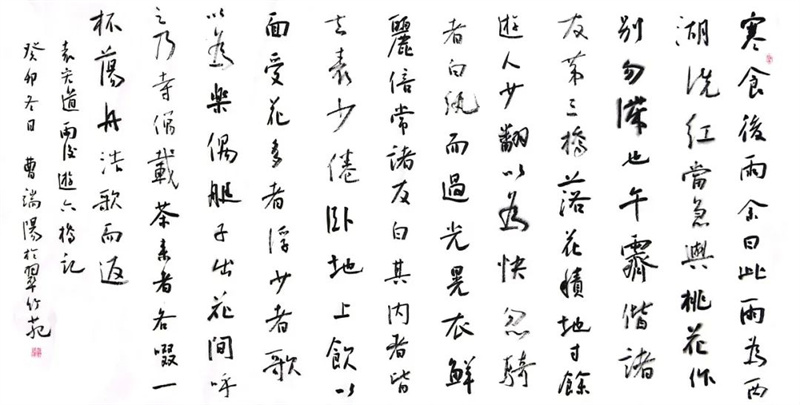 寒食後雨余曰此雨為西
湖洗紅當急與桃花作
别勿滯也午霽偕諸
友第三橋落花積地寸餘
遊人少翻以為快忽騎
者白紈而過光晃衣鮮
麗倍常諸友白其内者皆
去表少倦卧地上飲以
面受花多者浮少者歌
以為樂偶艇子出花間呼
之乃寺僧載茶来者各啜一
杯蕩舟浩歌而返
袁宏道雨後遊六橋記
癸卯冬日曹端陽於翠竹苑